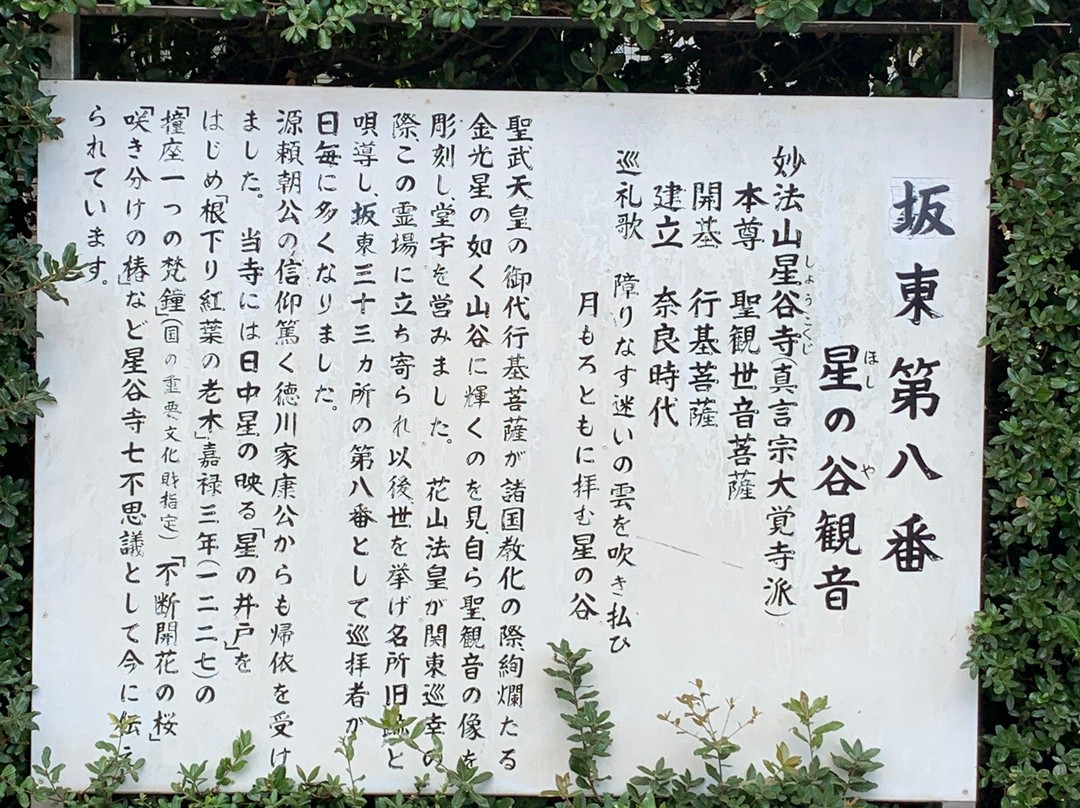 坂東第八番
ほし や
星の谷観音
しようこくじ
妙法山星谷寺(真言宗大覚寺派)
本尊 聖観世音菩薩
開基 行基菩薩
建立 奈良時代
巡礼歌 障りなす迷いの雲を吹き払ひ
月もろともに拝む星の谷
聖武天皇の御代行基菩薩が諸国教化の際絢爛たる
金光星の如く山谷に輝くのを見、自ら聖観音の像を
彫刻し、堂宇を営みました。 花山法皇が関東巡幸の
際この霊場に立ち寄られ以後、世を挙げ名所旧跡と
唄導し、坂東三十三ヵ所の第八番として巡拝者が
日毎に多くなりました。
源頼朝公の信仰篤く徳川家康公からも帰依を受け
ました。 当寺には日中星の映る「星の井戸」を
はじめ「根下り紅葉の老木」嘉禄三年(一二二七)の
「撞座一つの梵鐘」(国の重要文化財指定)「不断開花の桜」
「咲き分けの椿」など星谷寺七不思議として今に伝え
られています。